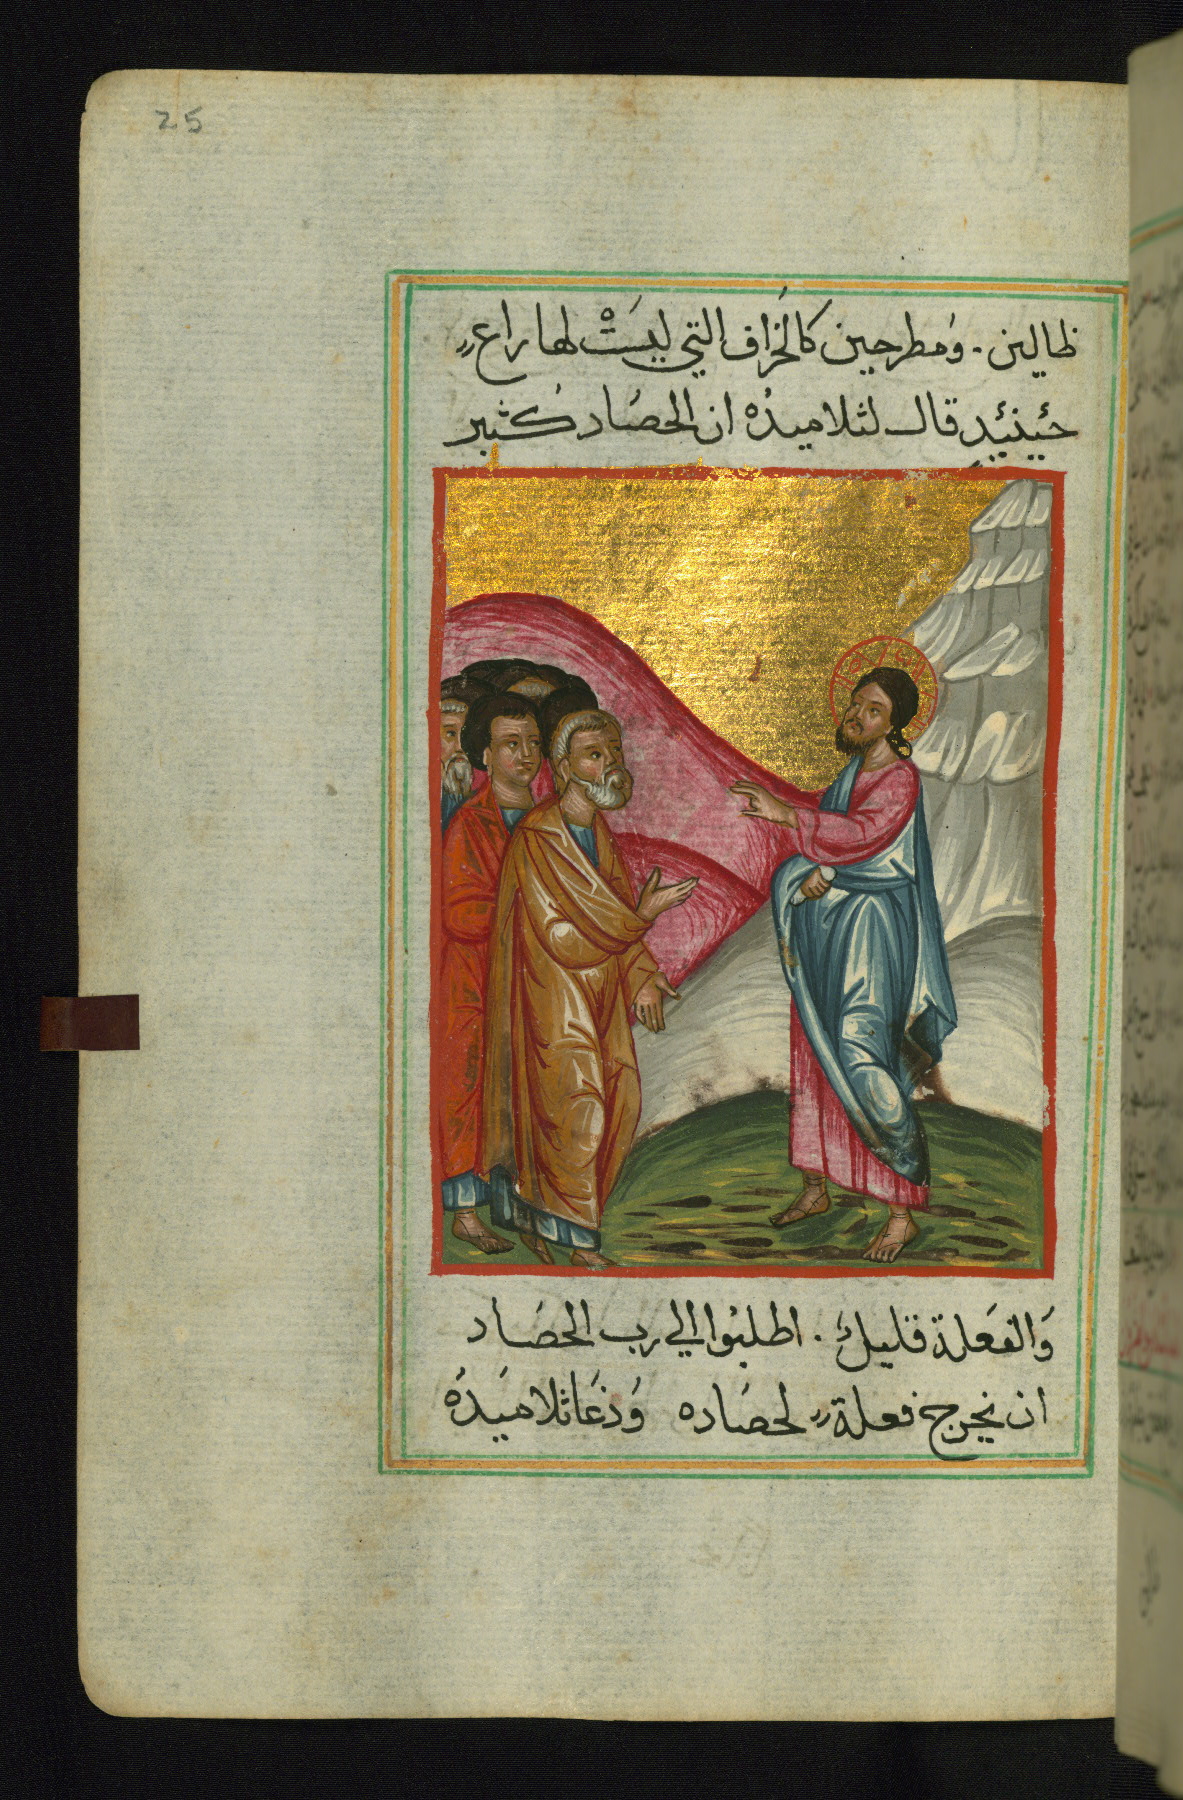 25
ظالين. وَمطرحين كالخَراف التي ليسَتْ لها راع
حئنئدٍ قال لتلاميدُه ان الحصَاد كثير
وَالفعَلة قليل. اطلبُوا الي رب الحصَاد
ان يخرج فعلة لحصَاده وَدعَا تلاميَدُه